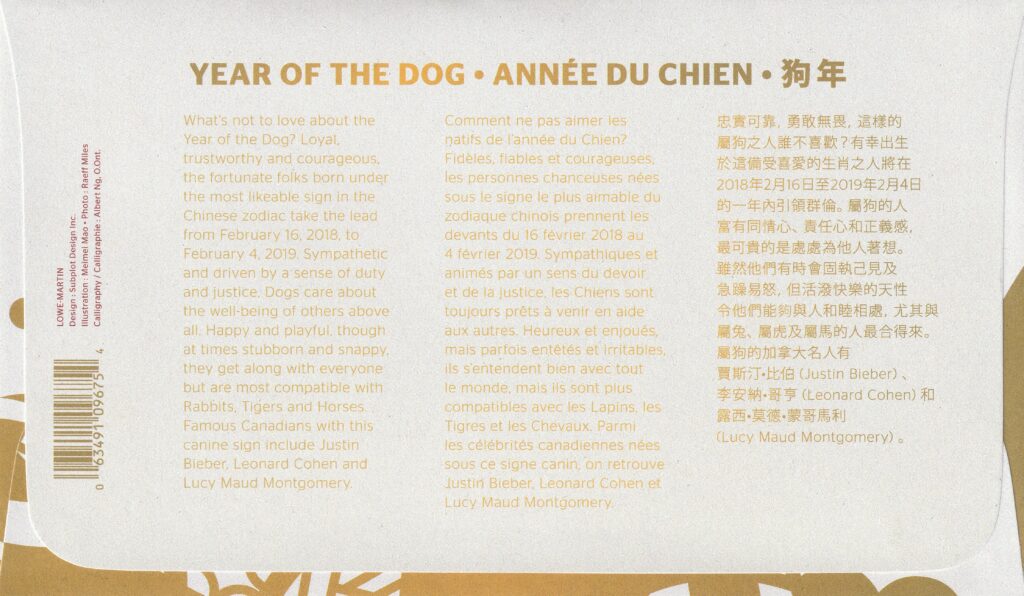 YEAR OF THE DOG • ANNÉE DU CHIEN • 狗年
What's not to love about the
Year of the Dog? Loyal,
trustworthy and courageous,
the fortunate folks born under
the most likeable sign in the
Chinese zodiac take the lead
from February 16, 2018, to
February 4, 2019. Sympathetic
and driven by a sense of duty
and justice, Dogs care about
the well-being of others above
all. Happy and playful, though
at times stubborn and snappy,
they get along with everyone
but are most compatible with
Rabbits, Tigers and Horses.
Famous Canadians with this
canine sign include Justin
Bieber, Leonard Cohen and
Lucy Maud Montgomery.
Comment ne pas aimer les
natifs de l'année du Chien?
Fidèles, fiables et courageuses,
les personnes chanceuses nées
sous le signe le plus aimable du
zodiaque chinois prennent les
devants du 16 février 2018 au
4 février 2019. Sympathiques et
animés par un sens du devoir
et de la justice, les Chiens sont
toujours prêts à venir en aide
aux autres. Heureux et enjoués,
mais parfois entêtés et irritables,
ils s'entendent bien avec tout
le monde, mais ils sont plus
compatibles avec les Lapins, les
Tigres et les Chevaux. Parmi
les célébrités canadiennes nées
sous ce signe canin, on retrouve
Justin Bieber, Leonard Cohen et
Lucy Maud Montgomery.
忠實可靠，勇敢無畏，這樣的
屬狗之人誰不喜歡？有幸出生
於這備受喜愛的生肖之人將在
2018年2月16日至2019年2月4日
的一年內引領群倫。屬狗的人
富有同情心、責任心和正義感，
最可貴的是處處為他人著想。
雖然他們有時會固執己見及
急躁易怒，但活潑快樂的天性
令他們能夠與人和睦相處，尤其與
屬兔、屬虎及屬馬的人最合得來。
屬狗的加拿大名人有
賈斯汀•比伯 (Justin Bieber) 、
李安納•哥亨 (Leonard Cohen) 和
露西•莫德•蒙哥馬利
(Lucy Maud Montgomery) 。
LOWE-MARTIN
Design : Subplot Design Inc.
Illustration : Meimei Mao • Photo : Raeff Miles
Calligraphy / Calligraphie : Albert Ng, O.Ont.
0 63491 09675 4